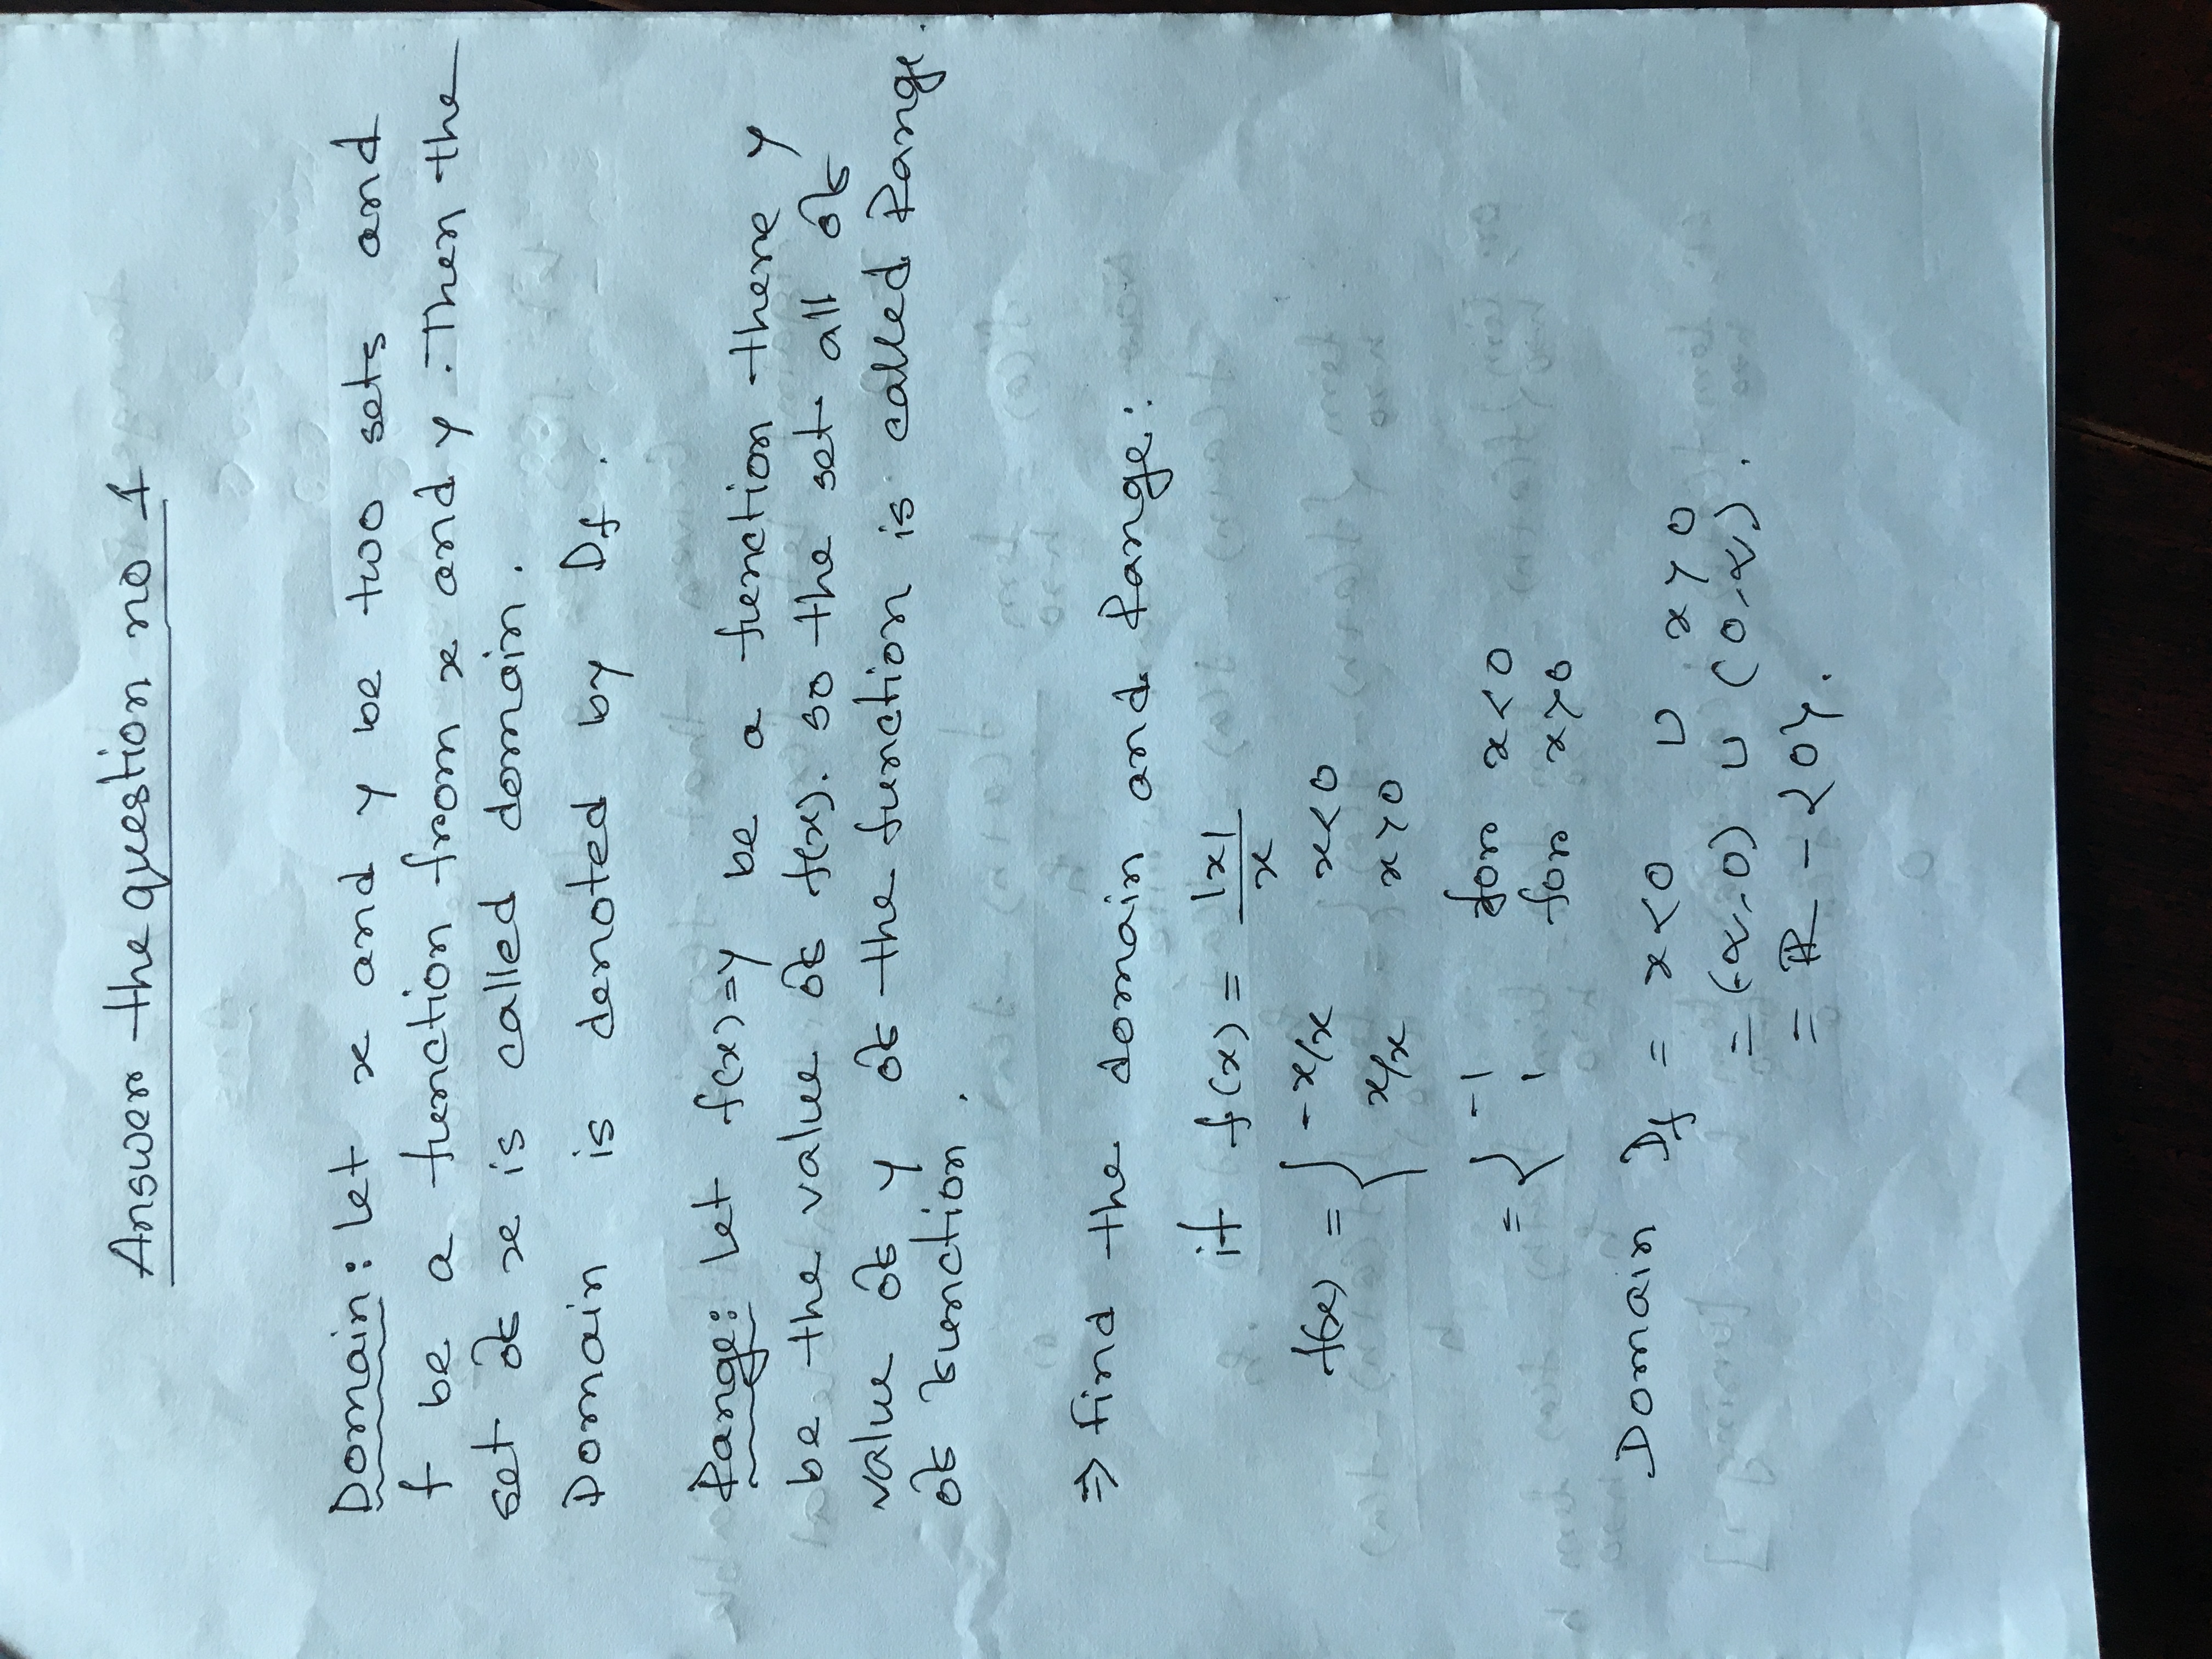 Answer the question no 1
Domain: Let x and y be two sets and
f be a function from x and y. Then the
set of x is called domain.
Domain is denoted by Df.
Range: Let f(x)=y be a function there y
be the value of f(x). so the set all of
value of y of the function is called Range.
of function.
⇒ find the domain and Range:
if f(x) = |x|/x
f(x) = { -x/x x<0
x/x x>0
= { -1 for x<0
1 for x>0
Domain Df = x<0 ∪ x>0
= (-∞, 0) ∪ (0, ∞).
= ℝ - {0}.